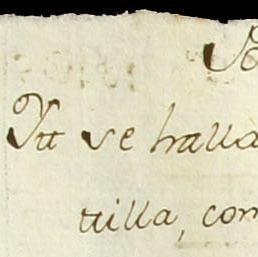 Ytt se halla
tilla, con